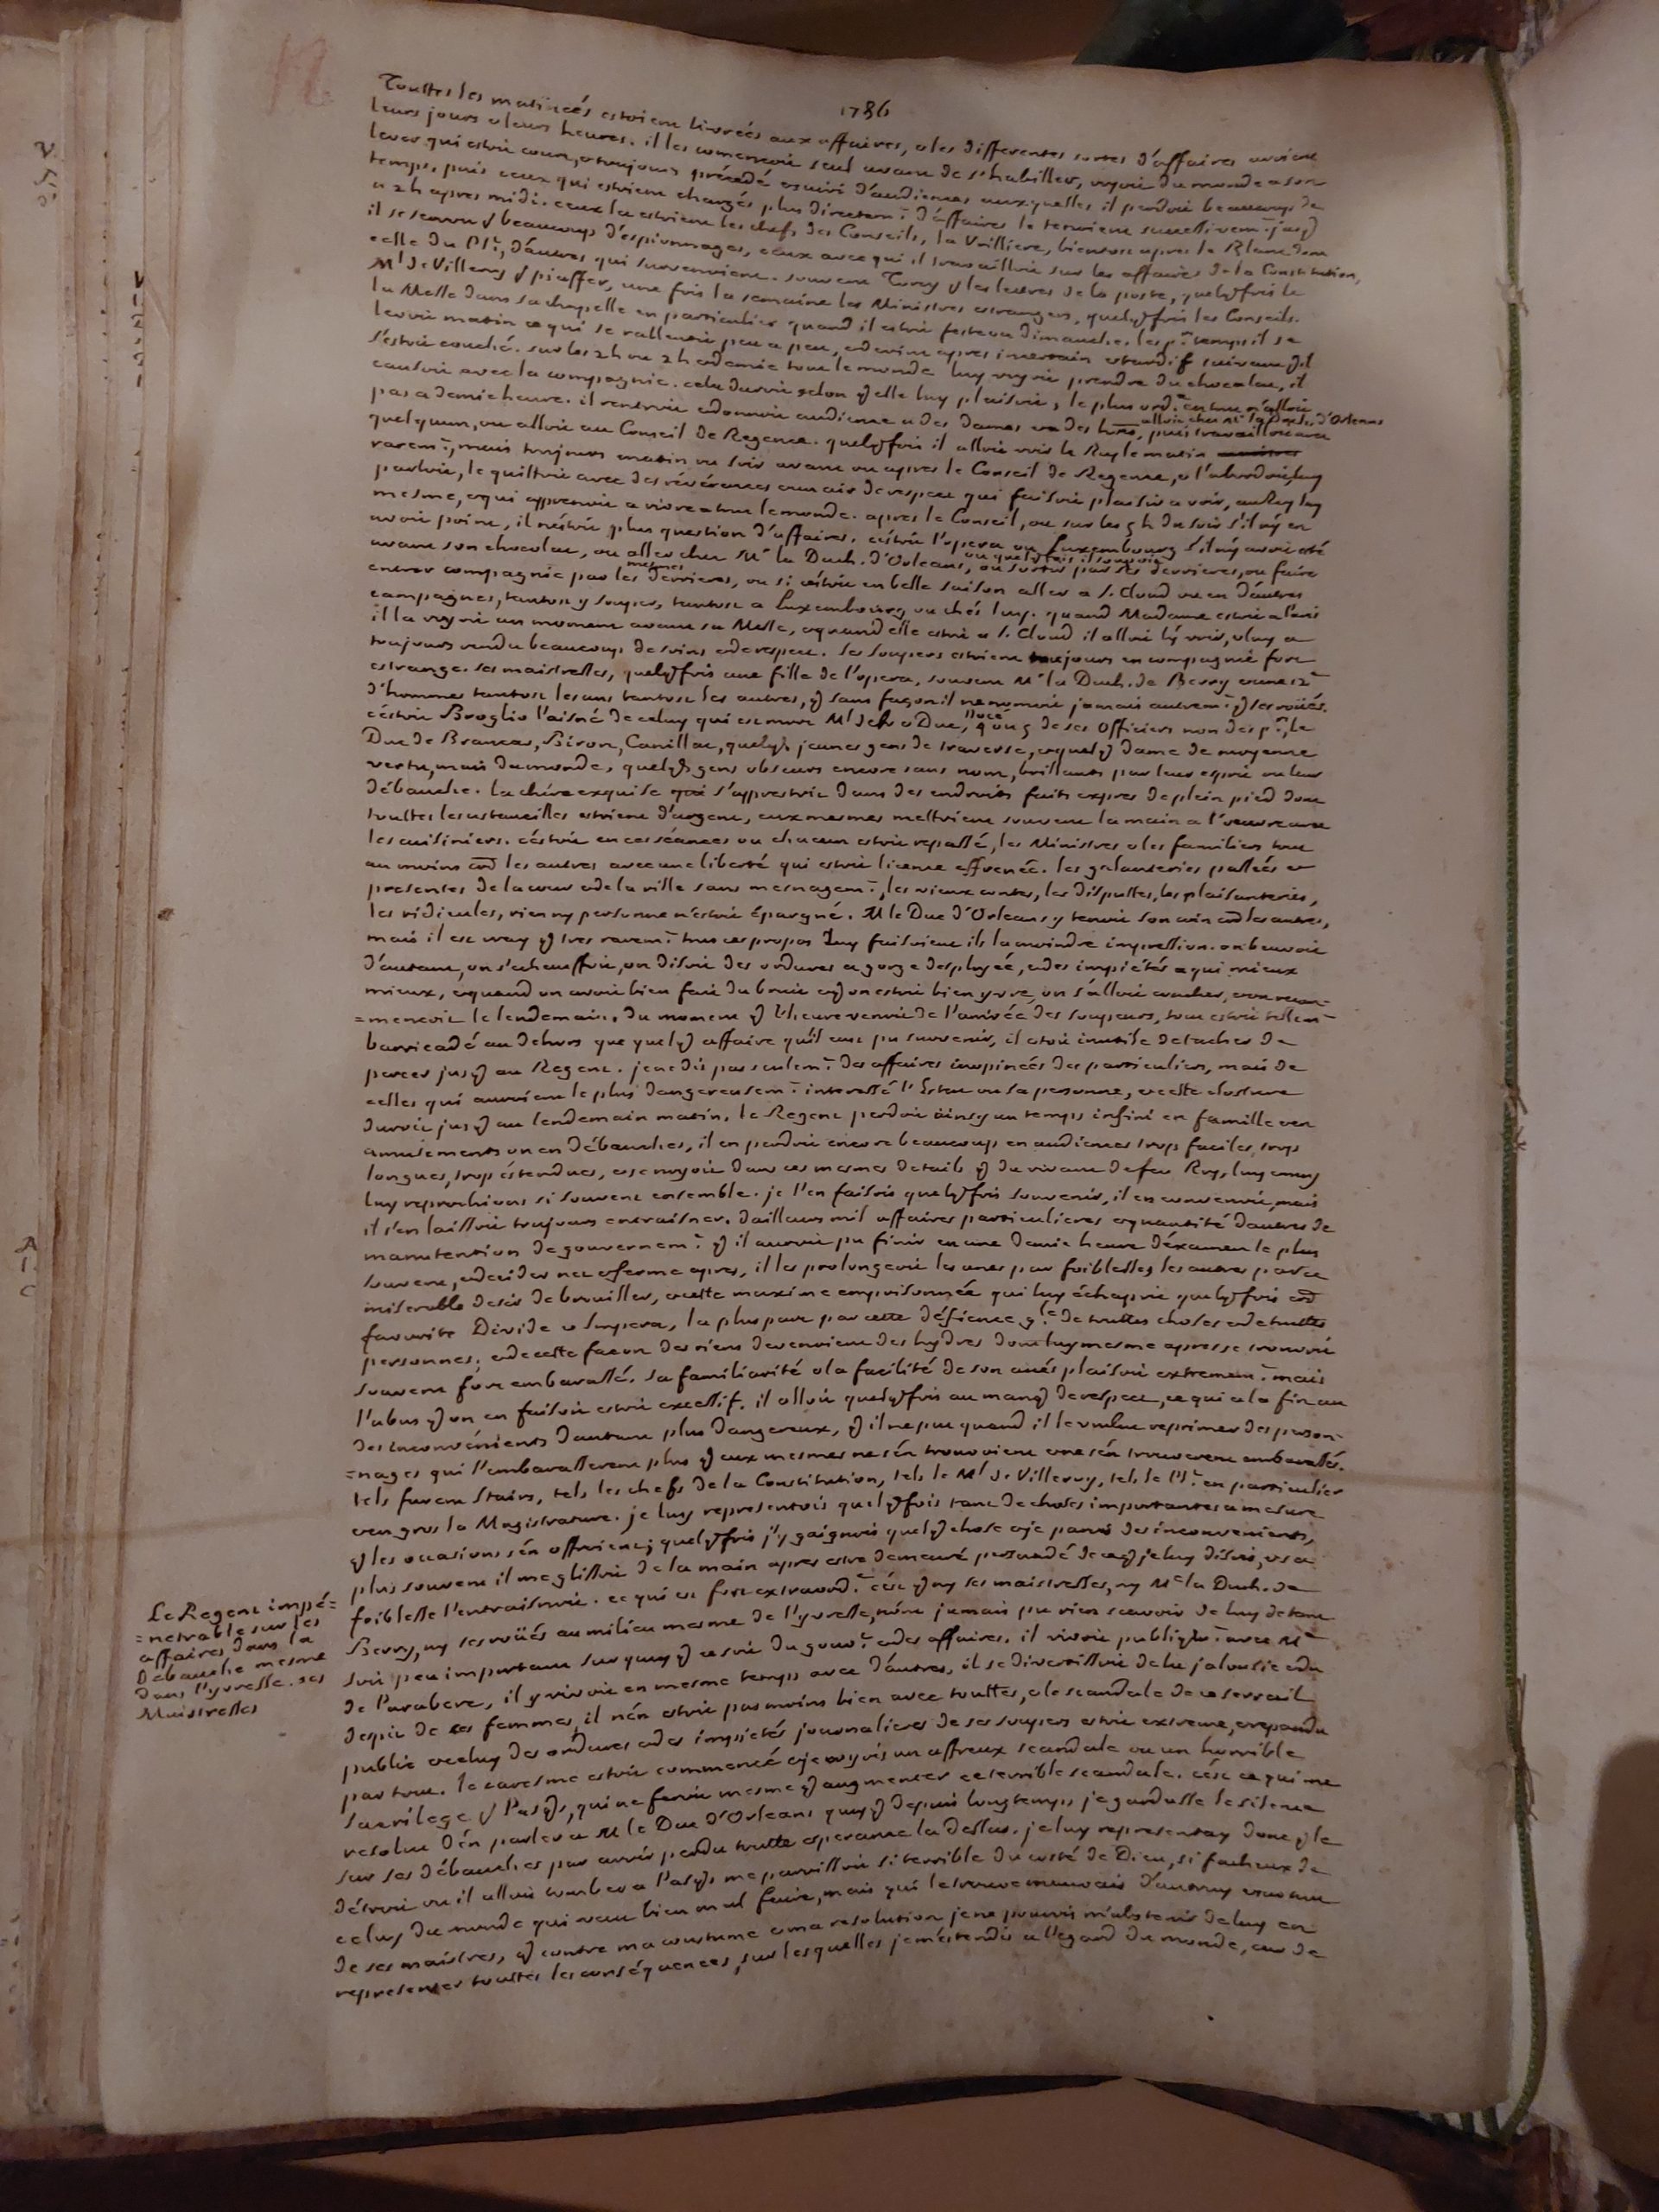 1786
Touttes les matinées estoient livrées aux affaires, et les differentes sortes d'affaires avoient
leurs jours et leurs heures. il les commençoit seul avant de s'habiller, voyoit du monde a son
lever qui estoit court, et toujours précedé et suivi d'audiences auxquelles il perdoit beaucoup de
temps, puis ceux qui estoient chargés plus directemt d'affaires le tenoient successivemt jusq
a 2 h apres midi. ceux la estoient les chefs des Conseils, la Vrilliere, bientost apres le Blanc dont
il se servoit pr beaucoup d'espionnages, ceux avec qui il travailloit sur les affaires de la Constitution,
celle du Plt, d'autres qui survenoient. souvent Torcy pr les lettres de la poste, quelqfois le
Ml de Villeroy pr piaffer, une fois la semaine les Ministres estrangers, quelqfois les Conseils.
la Messe dans sa chapelle en particulier quand il estoit feste ou dimanche. les prs temps il se
levoit matin ce qui se rallentit peu a peu, et devint apres incertain et tardif suivant qil
s'estoit couché. sur les 2 h ou 2 h et demie tout le monde luy voyoit prendre du chocolat, il
causoit avec la compagnie. cela duroit selon q elle luy plaisoit, le plus ordre en tout n'alloit
pas a demie heure. il rentroit et donnoit audience a des dames et a des homes, alloit chez Me la Duch. d'Orleans, puis travailloit avec
quelqu'un, ou alloit au Conseil de Regence. quelqfois il alloit voir le Roy le matin
raremt, mais toujours matin ou soir avant ou apres le Conseil de Regence, et l'abordoit, luy
parloit, le quittoit avec des révérences et un air de respect qui faisoit plaisir a voir, au Roy luy
mesme, et qui apprenoit a vivre a tout le monde. apres le Conseil, ou sur les 5 h du soir s'il n'y en
avoit point, il n'estoit plus question d'affaires. c'estoit l'opera ou Luxembourg s'il n'y avoit esté
avant son chocolat, ou aller chez Me la Duch. d'Orleans, ou quelqfois il soupoit, ou sortir par ses derrieres, ou faire
entrer compagnie par les mesmes derrieres, ou si c'estoit en belle saison aller a S. Cloud ou en d'autres
campagnes, tantost y souper, tantost a Luxembourg ou chés luy. quand Madame estoit a Paris
il la voyoit un moment avant sa Messe, et quand elle estoit a S. Cloud il alloit l'y voir, et luy a
toujours rendu beaucoup de soins et de respect. Ses soupers estoient toujours en compagnie fort
estrange. ses maistresses, quelqfois une fille de l'opera, souvent Me la Duch. de Berry et une 12e
d'hommes tantost les uns tantost les autres, q sans façon il ne nomoit jamais autremt q ses roüés.
c'estoit Broglio l'aisné de celuy qui est mort Ml de Fr et Duc, Nocé, 4 ou 5 de ses Officiers non des prs, le
Duc de Brancas, Biron, Canillac, quelqs jeunes gens de traverse, et quelq dame de moyenne
vertu, mais du monde, quelqs gens obscurs encore sans nom, brillants par leur esprit ou leur
débauche. la chére exquise s'apprestoit dans des endroits faits expres de plein pied dont
touttes les ustancilles estoient d'argent, eux mesmes mettoient souvent la main a l'oeuvre avec
les cuisiniers. c'estoit en ces séances ou chacun estoit repassé, les Ministres et les familiers tout
au moins coe les autres avec une liberté qui estoit licence effrenée. les galanteries passées et
presentes de la cour et de la ville sans mesnagemt, les vieux contes, les disputtes, les plaisanteries,
les ridicules, rien ny personne n'estoit épargné. M le Duc d'Orleans y tenoit son coin coe les autres,
mais il est vray q tres raremt tous ces propos luy faisoient ils la moindre impression. on beuvoit
d'autant, on s'échauffoit, on disoit des ordures a gorge desployée, et des impiétés a qui mieux
mieux, et quand on avoit bien fait du bruit et q on estoit bien yvre, on s'alloit coucher, et on recom-
=mençoit le lendemain. du moment q l'heure venoit de l'arrivée des soupeurs, tout estoit tellemt
barricadé au dehors que quelq affaire qu'il eust pu survenir, il etoit inutile de tacher de
percer jusq au Regent. je ne dis pas seulemt des affaires inopinées des particuliers, mais de
celles qui auroient le plus dangereusemt interessé l'Estat ou sa personne, et cette closture
duroit jusq au lendemain matin. le Regent perdoit ainsy un temps infini en famille et en
amusements ou en débauches, il en perdoit encore beaucoup en audiences trop faciles, trop
longues, trop éstendues, et se noyoit dans ces mesmes details q du vivant du feu Roy, luy et moy
luy reprochions si souvent ensemble. je l'en faisois quelqfois souvenir, il en convenoit, mais
il s'en laissoit toujours entraisner. d'ailleurs mil affaires particulieres et quantité d'autres de
manutention de gouvernemt q il auroit pu finir en une demie heure d'éxamen le plus
souvent, et decider net et ferme apres, il les prolongeoit les unes par foiblesse, les autres par ce
miserable desir de brouiller, et cette maxime empoisonnée qui luy échapoit quelqfois coe
favorite Divide et Impera, la plus part par cette défiance gle de touttes choses et de touttes
personnes, et de cette facon des riens devenoient des hydres dont luy mesme apres se trouvoit
souvent fort embarassé. sa familiarité et la facilité de son accés plaisoit extrememt mais
l'abus q on en faisoit estoit excessif. il alloit quelqfois au manq de respect, ce qui a la fin eut
des inconvénients d'autant plus dangereux, q il ne put quand il le voulut reprimer des person-
=nages qui l'embarasserent plus q eux mesmes ne s'en trouvoient et ne s'en trouverent embarassés.
tels furent Stairs, tels les chefs de la Constitution, tels le Ml de Villeroy, tels le Plt en particulier
et en gros la Magistrature. je luy representois quelqfois tant de choses importantes a mesure
q les occasions s'en offroient; quelqfois j'y gaignois quelq chose et je parois des inconvenients,
plus souvent il me glissoit de la main apres estre demeuré persuadé de ce q je luy disois, et sa
foiblesse l'entraisnoit. ce qui est fort extraordre c'est q ny ses maistresses, ny Me la Duch. de
Berry, ny ses roüés au milieu mesme de l'yvresse, n'ont jamais pu rien scavoir de luy de tant
soit peu important sur quoy q ce soit du gouvt et des affaires. il vivoit publiqmt avec Me
de Parabere, il y vivoit en mesme temps avec d'autres, il se divertissoit de la jalousie et du
despit de ces femmes, il n'en estoit pas moins bien avec touttes, et le scandale de ce serrail
public et celuy des ordures et des impietés journalieres de ses soupers estoit extreme, et repandu
par tout. le caresme estoit commencé et je voyois un affreux scandale ou un horrible
sacrilege pr Pasqs, qui ne feroit mesme q augmenter ce terrible scandale. c'est ce qui me
resolut d'en parler a M le Duc d'Orleans quoy q depuis longtemps je gardasse le silence
sur ses débauches par avoir perdu toutte esperance la dessus. je luy representay donc q le
détroit ou il alloit tomber a Pasqs me paroissoit si terrible du costé de Dieu, si facheux de
celuy du monde qui veut bien mal faire, mais qui le trouve mauvais d'autruy et surtout
de ses maistres, q contre ma coustume et ma resolution je ne pouvois m'abstenir de luy en
representer touttes les conséquences, sur lesquelles je m'estendis a l'egard du monde, car de
Le Regent impé=
=netrable sur les
affaires dans la
Débauche mesme
dans l'yvresse. ses
Maistresses